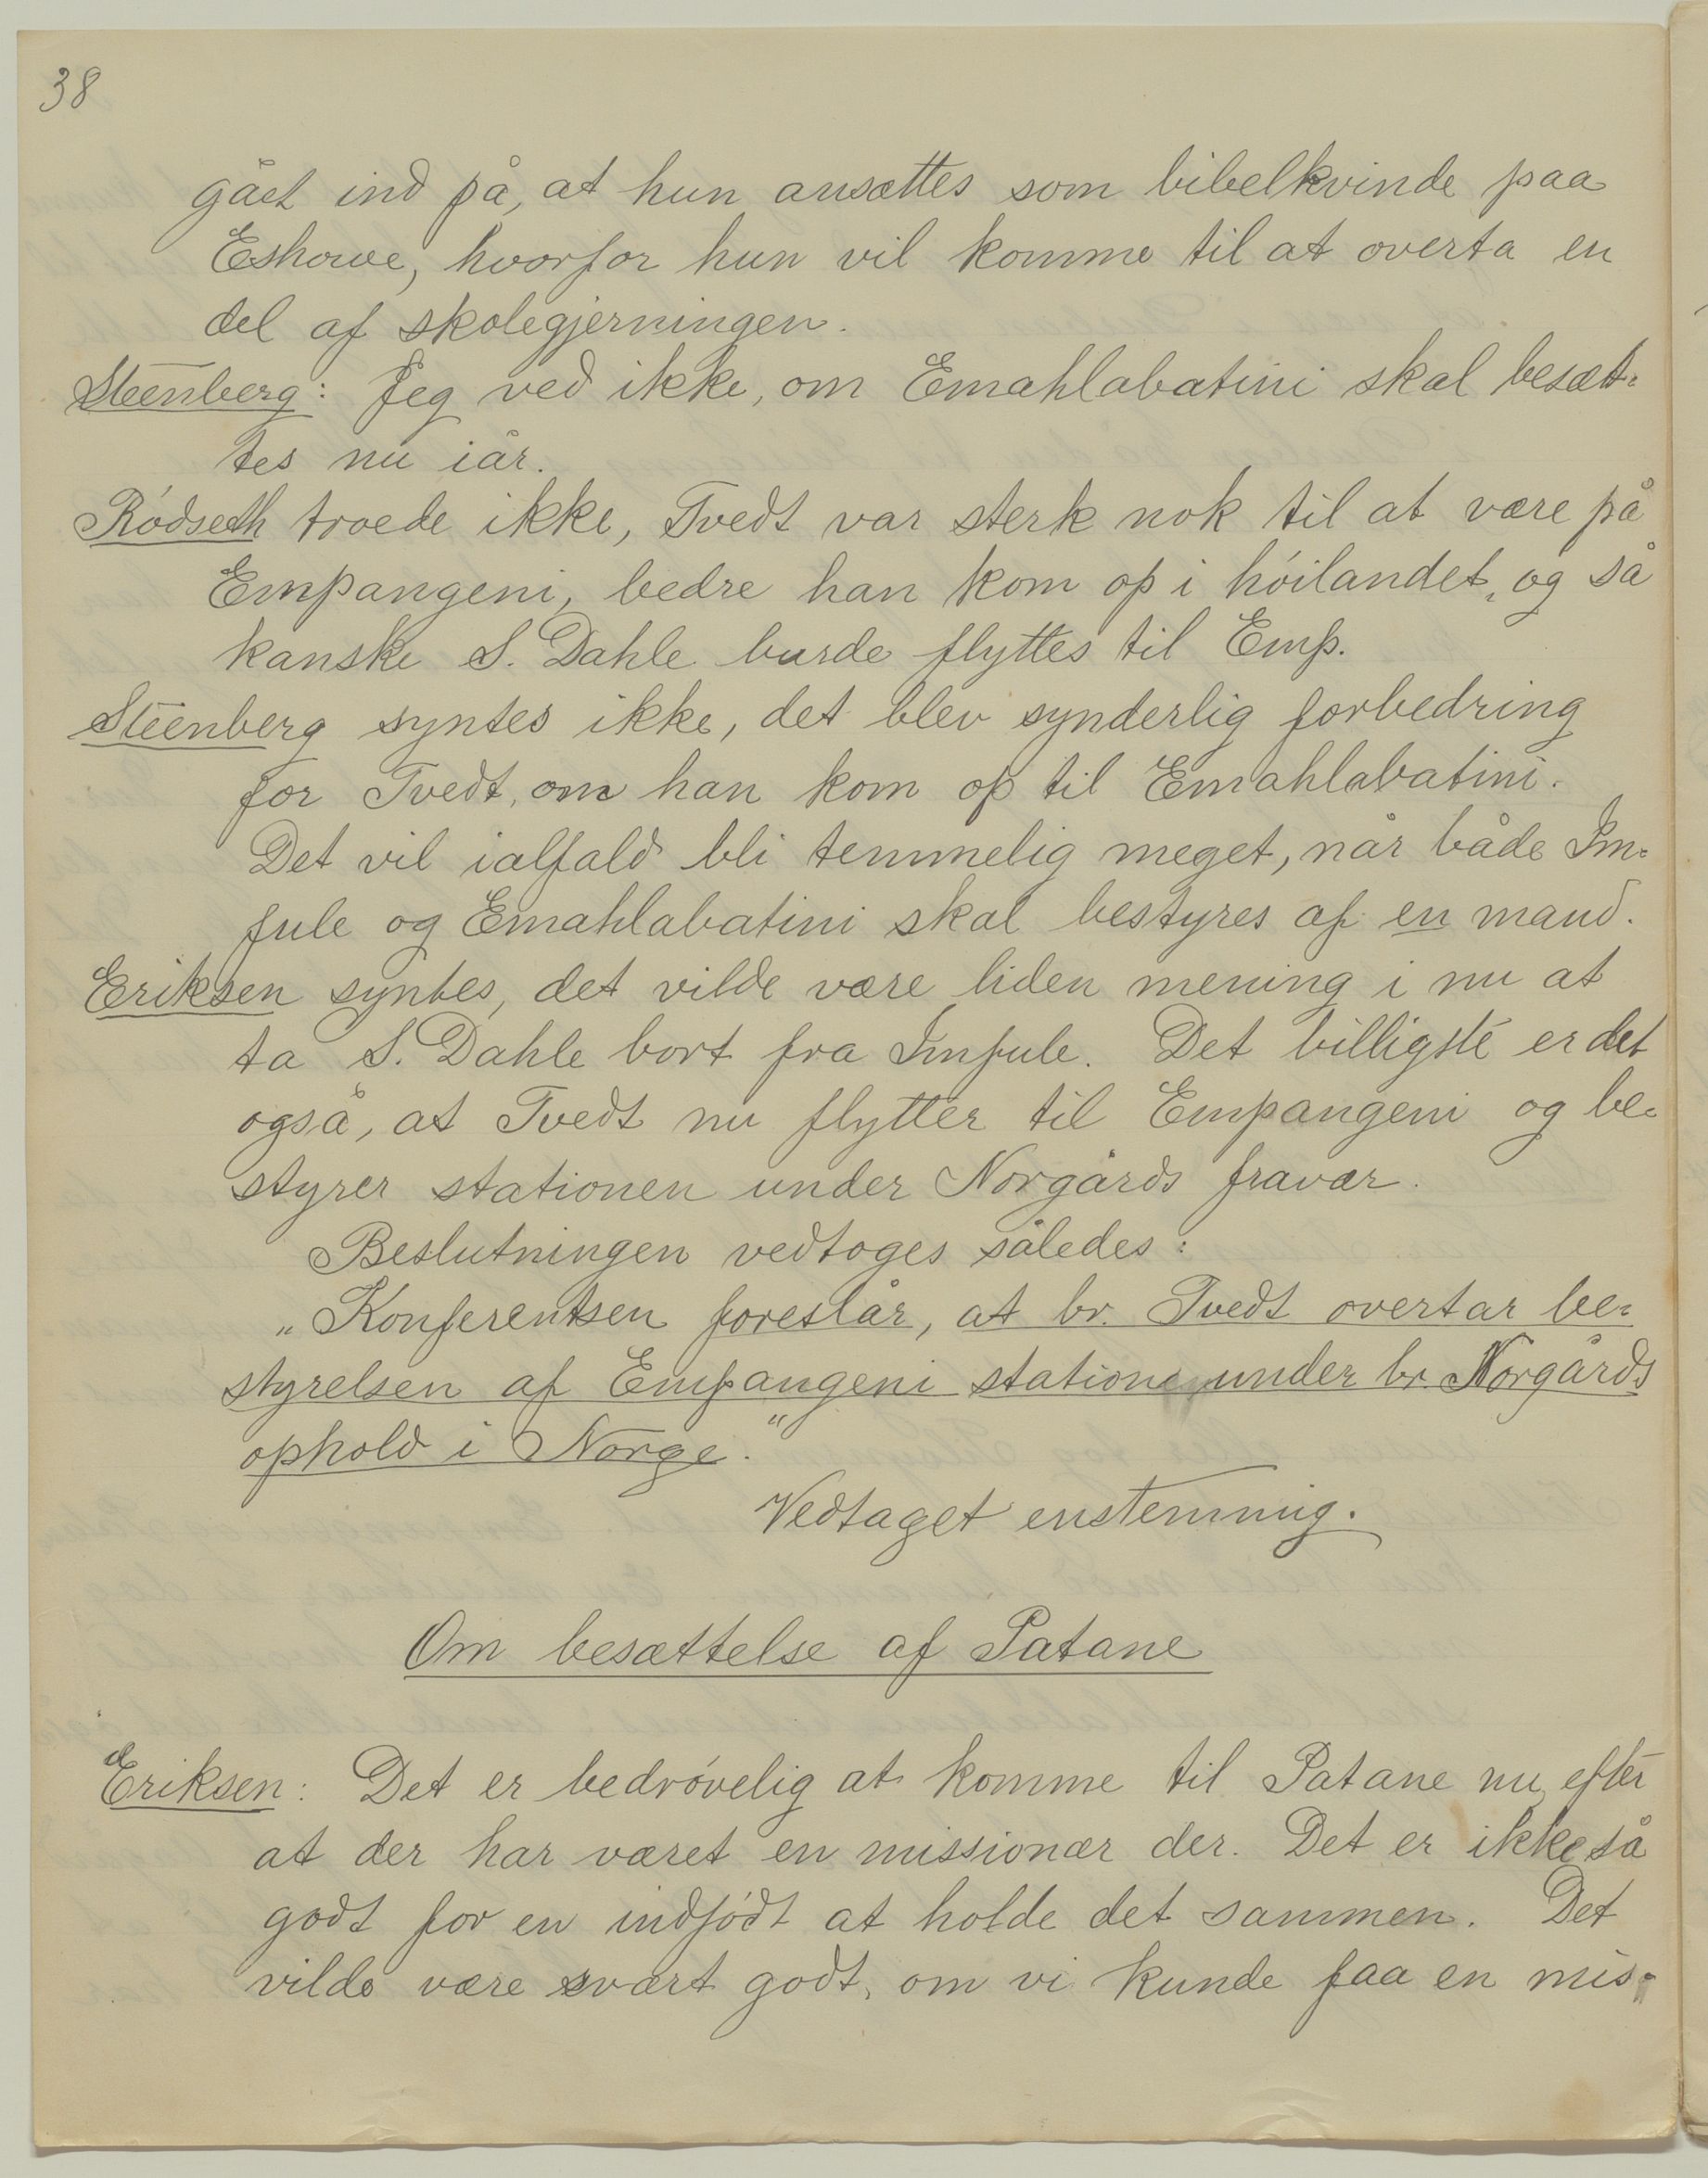 38
gået ind på, at hun ansættes som bibelkvinde paa
Eshowe, hvorfor hun vil komme til at overta en
del af skolegjerningen.
Steenberg: Jeg ved ikke, om Emahlabatini skal besæt-
tes nu iår.
Ródseth troede ikke, Tvedt var sterk nok til at være på
Empangeni, bedre han kom op i hóilandet, og så
kanske S. Dahle burde flyttes til Emp.
Steenberg syntes ikke, det blev synderlig forbedring
for Tvedt, om han kom op til Emahlabatini.
Det vil ialfald bli temmelig meget, når både Im-
fule og Emahlabatini skal bestyres af en mand.
Eriksen syntes, det vilde være liden mening i nu at
ta S. Dahle bort fra Imfule. Det billigste er det
også, at Tvedt nu flytter til Empangeni og be-
styrer stationen under Norgårds fravær.
Beslutningen vedtoges således:
„Konferentsen foreslår, at br. Tvedt overtar be-
styrelsen af Empangeni station under br. Norgårds
ophold i Norge."
Vedtaget enstemmig.
Om besættelse af Patane
Eriksen: Det er bedróvelig at komme til Patane nu, efter
at der har været en missionær der. Det er ikke så
godt for en indfódt at holde det sammen. Det
vilde være svært godt, om vi kunde faa en mis-